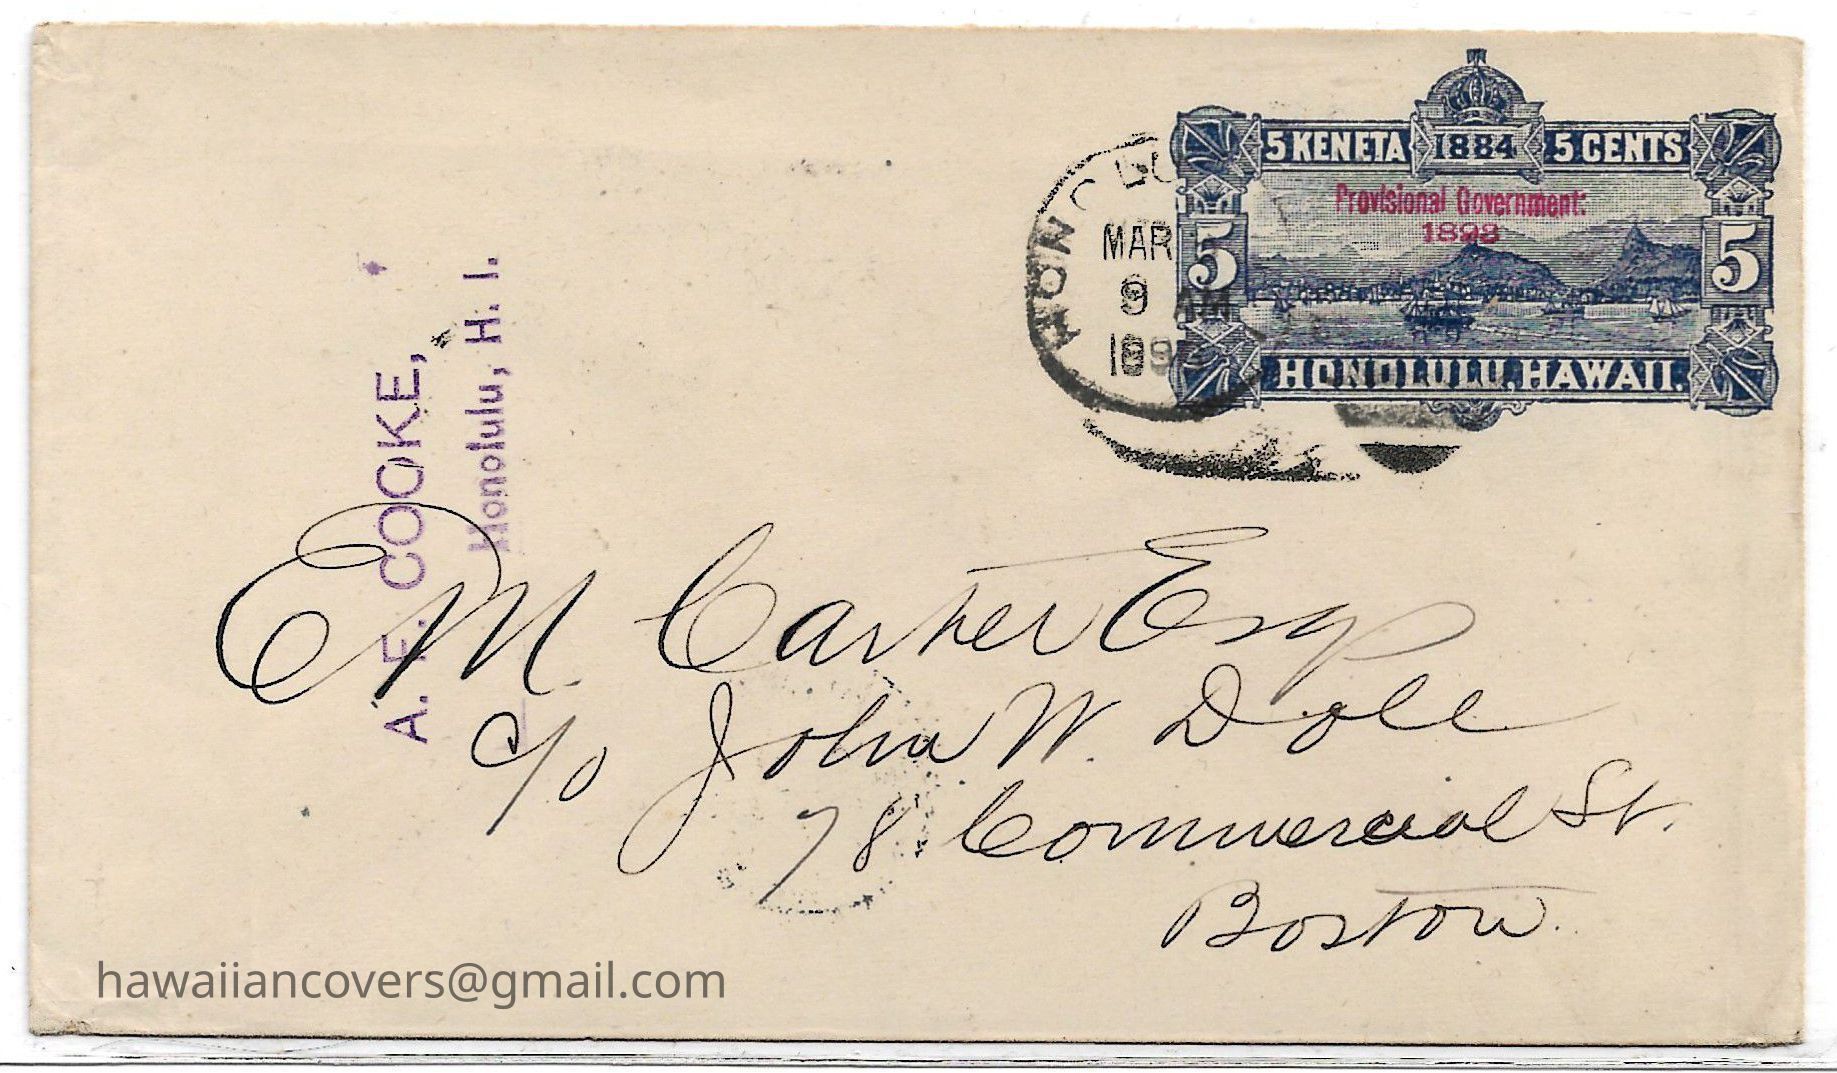 5 KENETA 1884 5 CENTS
Provisional Government.
1893
5 5
HONOLULU, HAWAII.
HONOLU
MAR
9 AM
189
A. F. COOKE,
Honolulu, H. I.
E M Carter Esq
c/o John W. Dole
78 Commercial St.
Boston.
hawaiiancovers@gmail.com